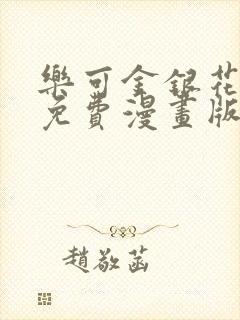 樂可金銀花
免費漫畫版
趙敬菡